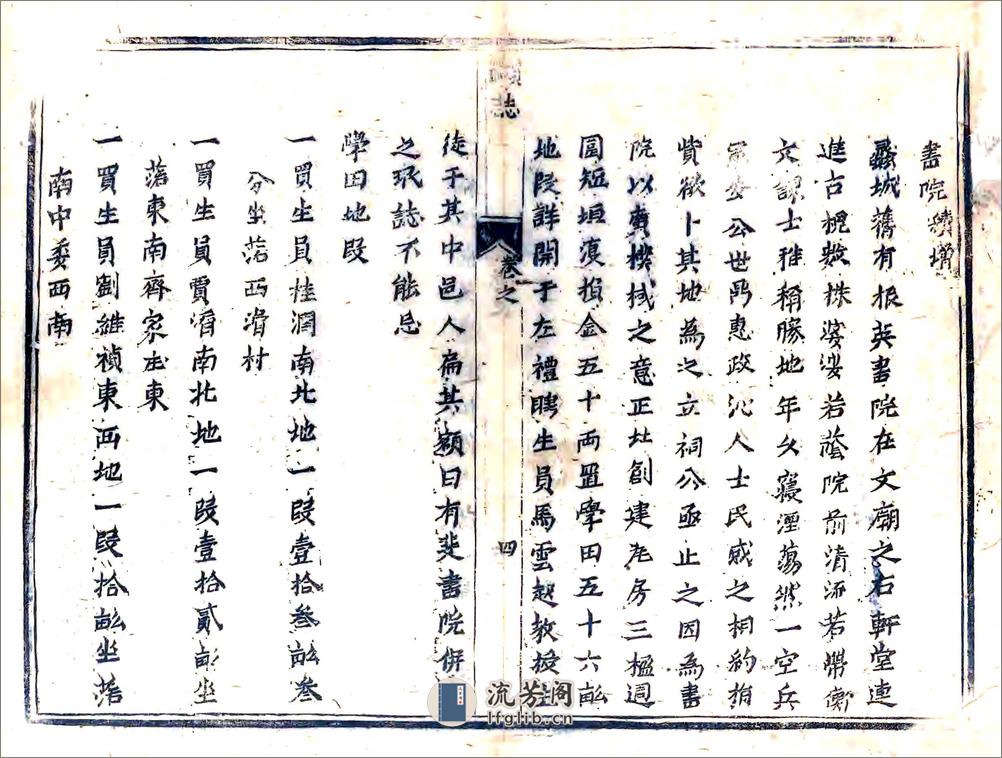 書院續增
蟸城舊有振英書院在文廟之右軒堂連
進古槐數株婆娑若蔭院前清流若帶衡
文課士雅稱勝地年久寢湮蕩然一空兵
公世鳴惠政沁人士民感之相約捐
貲欲卜其地為之立祠公亟止之因為書
院以廣樸棫之意正北創建老房三楹週
圍短垣復捐金五十兩置學田五十六畝
地段詳開于左禮聘生員馬雲起教授生
誌
卷之
四
徒于其中邑人扁其額曰有斐書院併
之珉誌不能忘
學田地段
一買生員桂潤南北地一段壹拾叁畝叁
分坐落西滑村
一買生員賈濱南北地一段壹拾貳畝坐
落東南齊家庄東
一買生員劉維禎東西地一段拾畝坐落
南中委西南
流芳閣
lfglib.cn